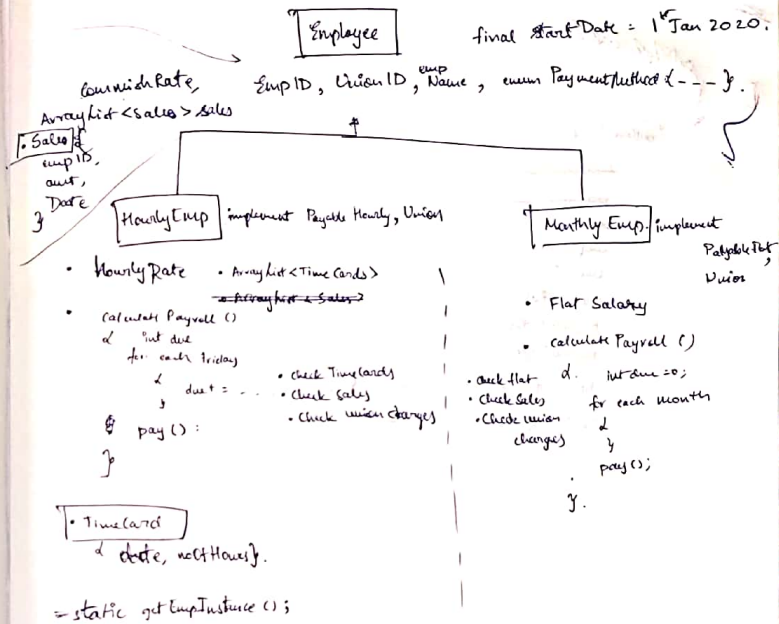 Employee
final startDate = 1st Jan 2020.
CommishRate,
EmpID, UnionID, emp Name, enum PaymentMethod { --- }.
ArrayList <Sales> sales
• Sales {
empID,
amt,
Date
}
HourlyEmp implement Payable Hourly, Union
Monthly Emp. implement
Union
• HourlyRate • ArrayList <TimeCards>
• ArrayList < Sales >
• Flat Salary
• calculate Payroll ()
{ int due
for each friday
{
due + = . .
}
• check TimeCards
• check Sales
• Check union charges
pay () :
}
• calculate Payroll ()
{. int due =0;
for each month
{
}
pay();
}.
• check flat
• Check Sales
• Check union
charges
• TimeCard
{ date, noOfHours}.
= static getEmpInstance ();